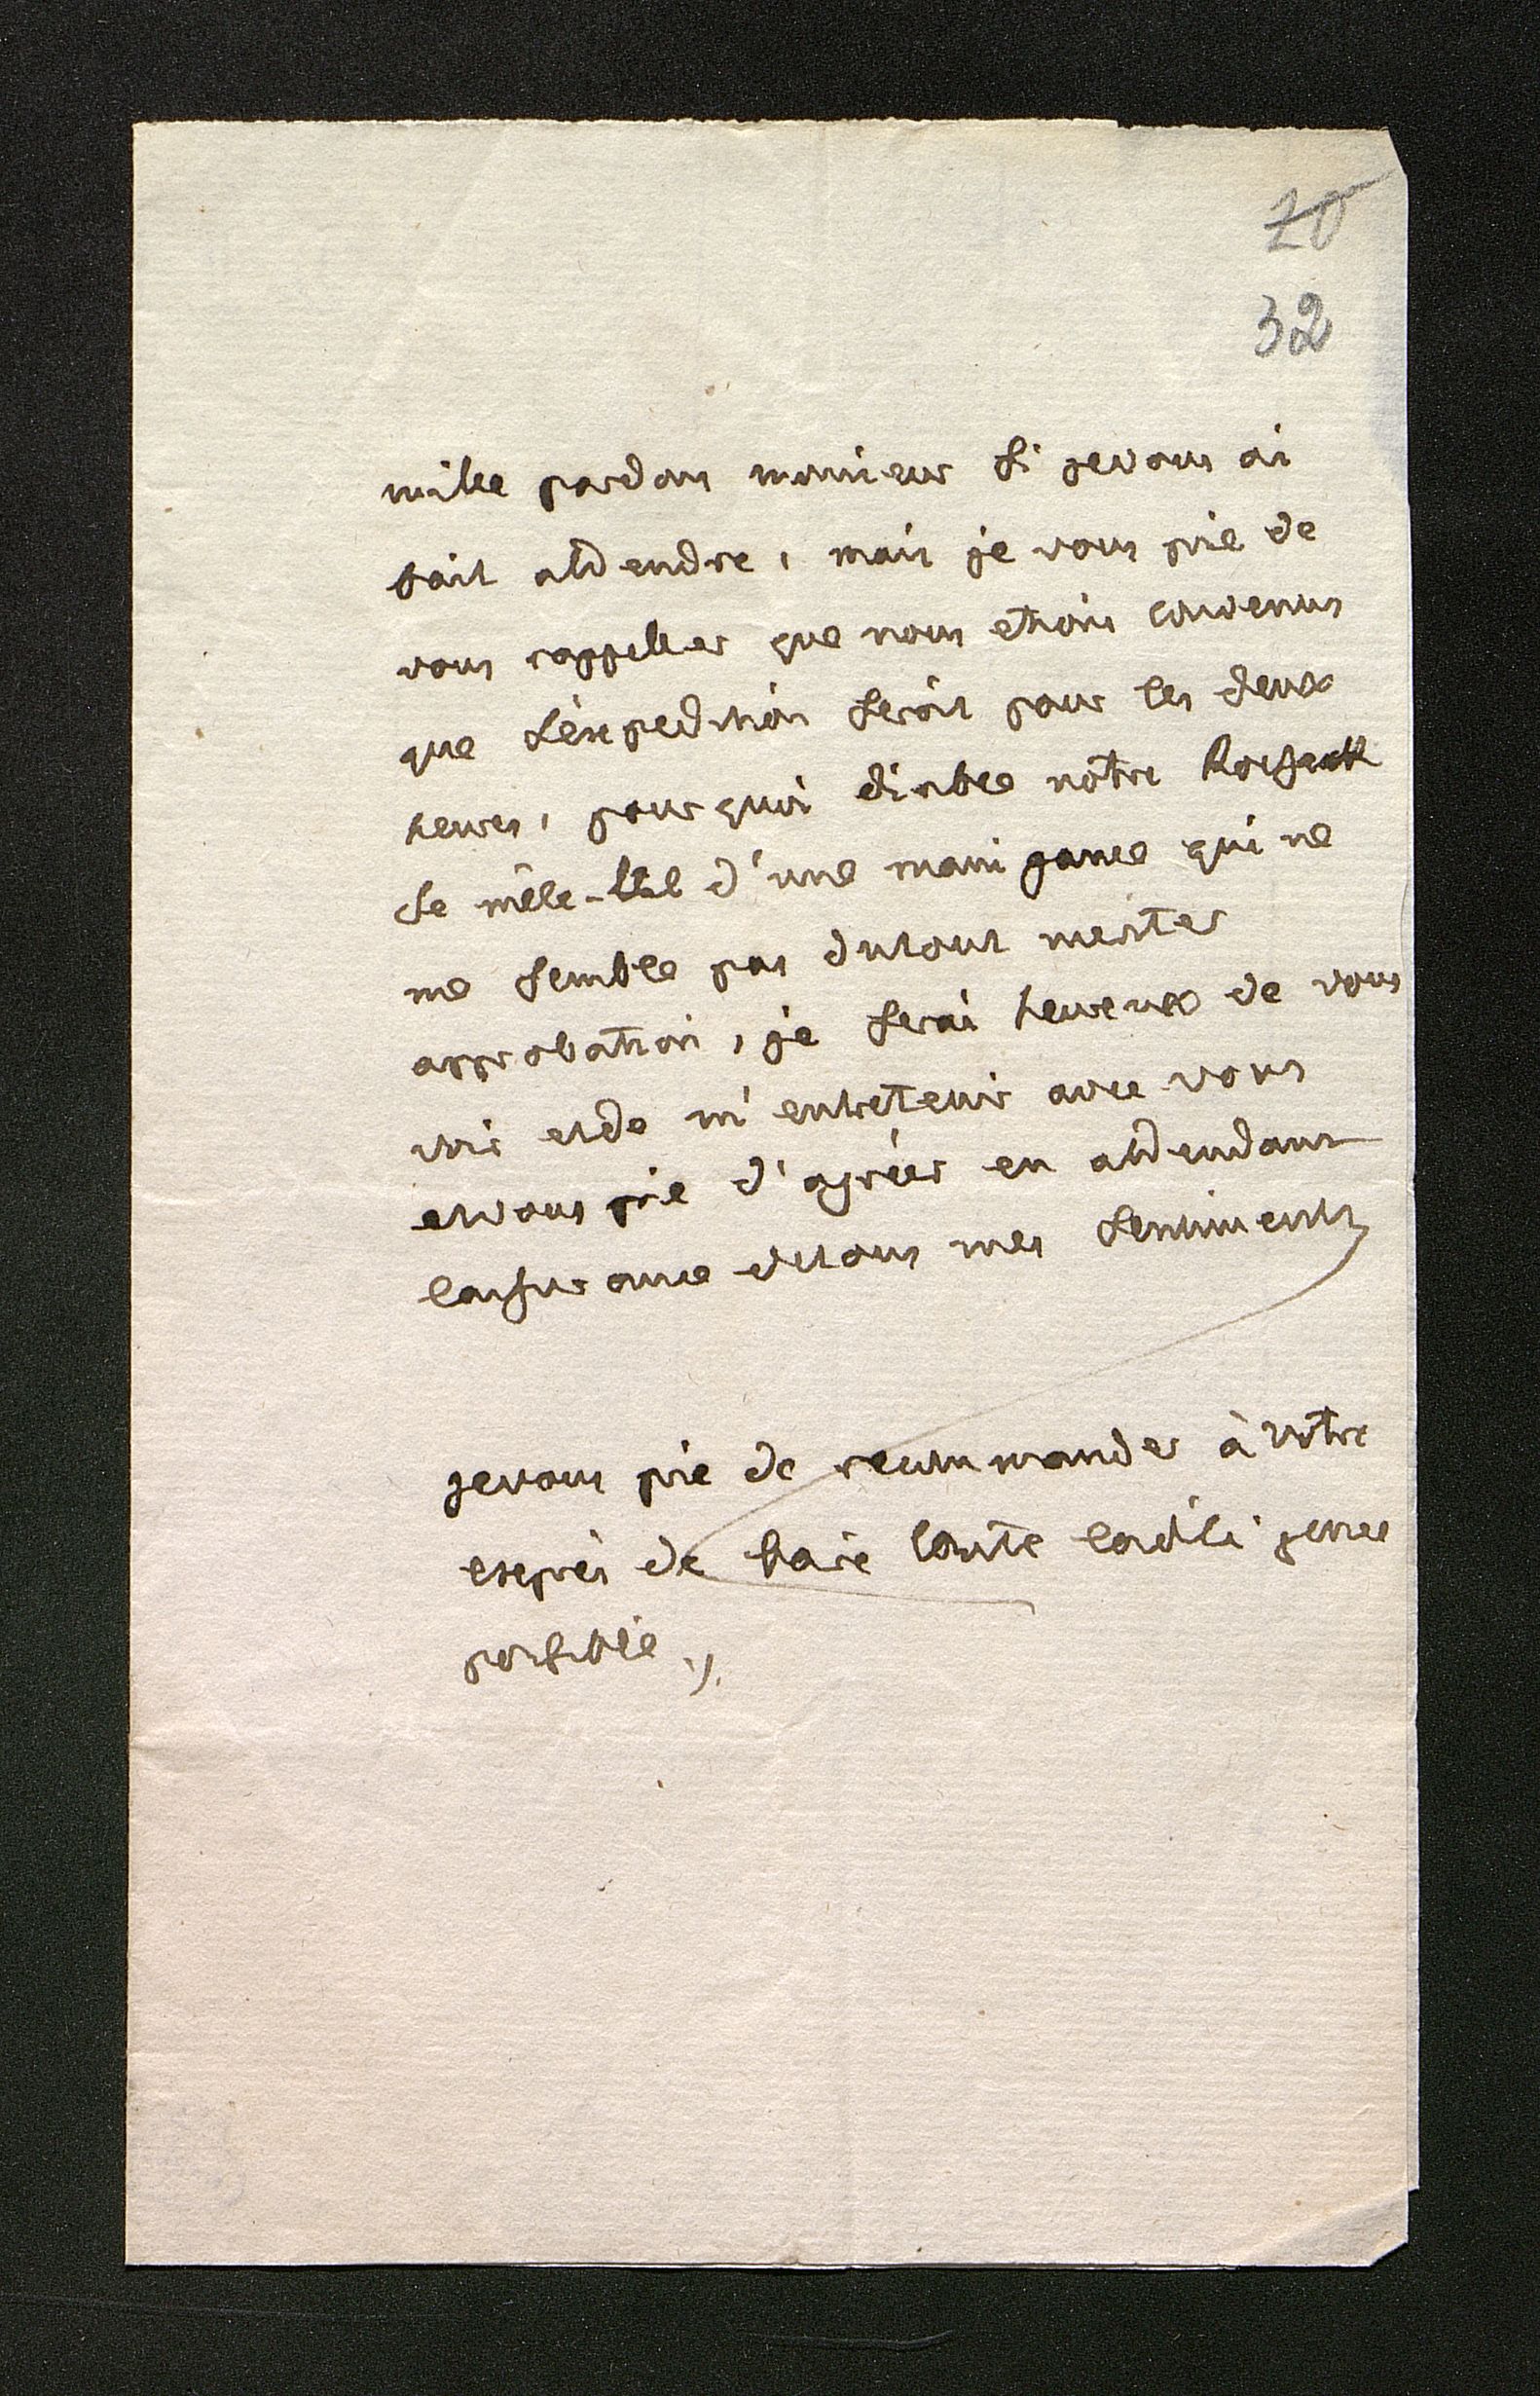 20
32
mille pardons monsieur si jevous ai
fait attendre, mais je vous prie de
vous rappeller que nous etions convenus
que l'expedition seroit pour les deux
heures, pourquoi diable nôtre
se mêle-t-il d'une manigance qui ne
me semble pas dutout meriter
approbation, je serai heureux de vous
voir etde m'entretenir avec vous
etvous prie d'agréer en attendant
lassurance detous mes sentiments
jevous prie de recommander à vôtre
exprès de faire toute ladiligence
possible ./.